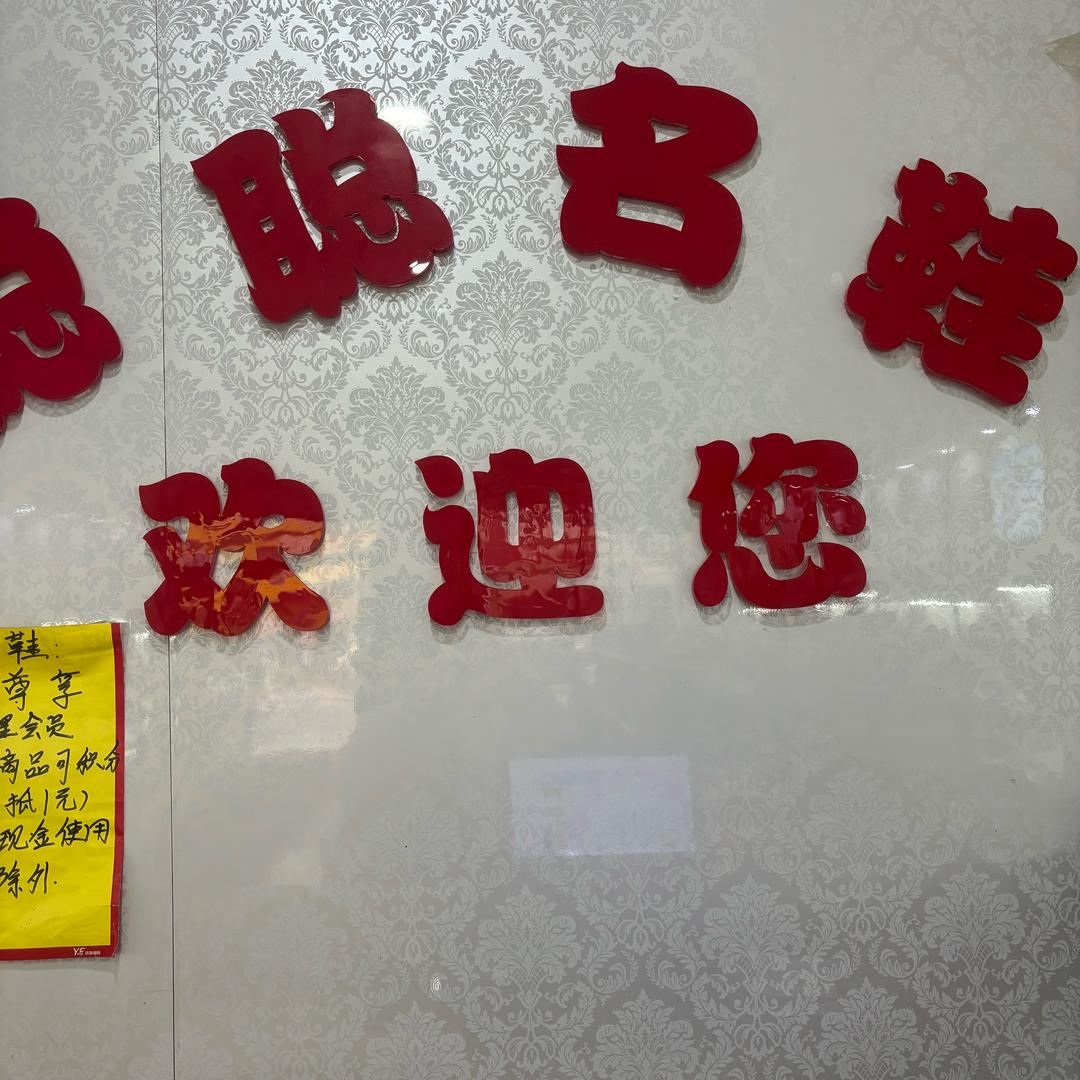 聪名鞋
欢迎您
鞋:
尊享
会员
商品可积分
抵1元)
现金使用
除外.
Y.E